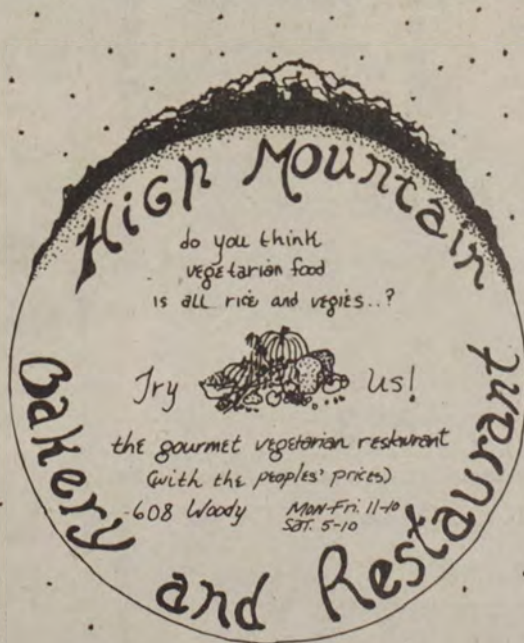 High Mountain
do you think
vegetarian food
is all rice and vegies..?
Try Us!
the gourmet vegetarian restaurant
(with the peoples' prices)
608 Woody MON-Fri. 11-10
SAT. 5-10
Bakery and Restaurant